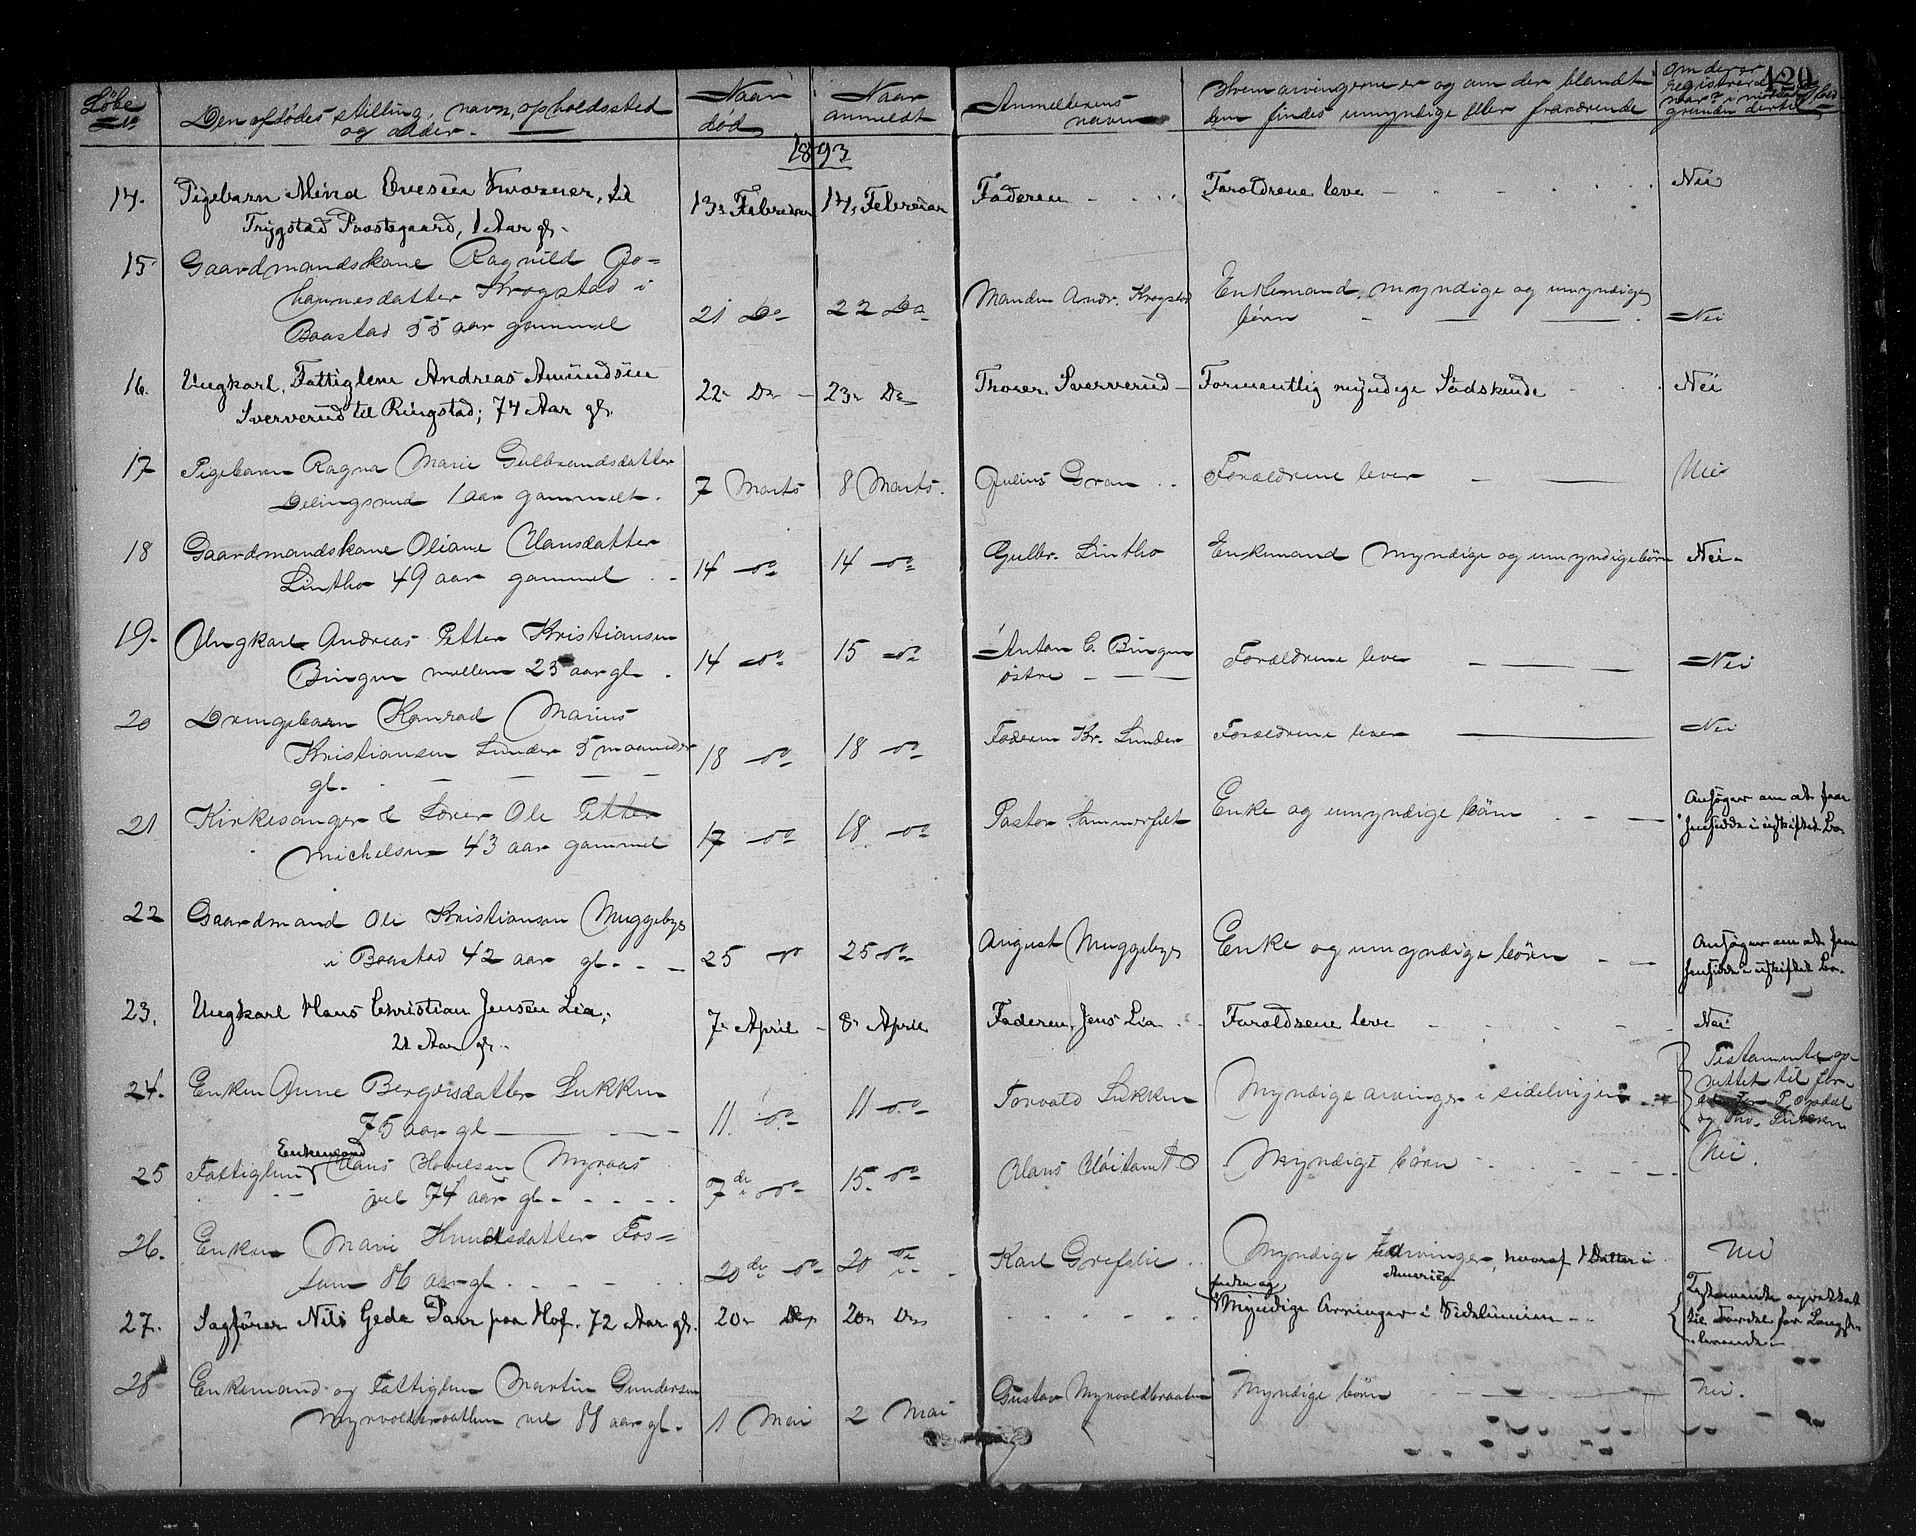 120
Løbe No
Den afdødes stilling, navn, opholdssted
og alder.
Naar
død
Naar
anmeldt
Anmelderens
navn
Hvem arvingerne er og om der blandt
dem findes umyndige eller fraværende
Om der er
registreret
grunden dertil
1893
14. Pigebarn Mina Evesen til
Trygstad Præstegaard, 1 Aar gl. 13. Februar 14. Februar Faderen Forældrene leve Nei
15 Gaardmandskone Ragnild Jo-
hannesdatter Krogstad i
Baastad 55 aar gammel 21 Do 22 Do Manden Andr. Krogstad Enkemand, myndige og umyndige
børn Nei
16. Ungkarl, Fattiglem Andreas Amundsen
Sververud til Ringstad; 74 Aar gl. 22. Do 23. Do Thorer Sververud Formentlig myndige Sødskende Nei
17 Pigebarn Ragna Marie Gulbrandsdatter
Delingsrud 1 aar gammelt. 7 Marts 8 Marts. Julius Gran Forældrene lever Nei
18 Gaardmandskone Oliane Hansdatter
Lintho 49 aar gammel 14 do 14 do Gulbr. Lintho Enkemand myndige og umyndige børn Nei
19. Ungkarl Andreas Petter Kristiansen
Bingen mellem 23 aar gl. 14 do 15 do Anton C. Bingen
østre Forældrene lever Nei
20 Drengebarn Konrad Marius
Kristiansen Lunder 5 maaneder
gl. 18 do 18 do Faderen Kr. Lunder Forældrene lever Nei
21 Kirkesanger & Lærer Ole Petter
Michelsen 43 aar gammel 17 do 18 do Pastor Sommerfelt Enke og umyndige børn Ansøger om at faa
hensidde i uskiftet Bo.
22 Gaardmand Ole Kristiansen Muggebye
i Baastad 42 aar gl. 25 do 25 do August Muggebye Enke og umyndige børn Ansøger om at faa
hensidde i uskiftet Bo.
23. Ungkarl Hans Christian Jensen Lia,
21 Aar gl. 7. April 8. April Faderen, Jens Lia Forældrene leve Nei
24. Enken Anne Bergersdatter Lukken
75 aar gl 11. do 11 do Torvald Lukken Myndige arvinger i sidelinjen Testamente op-
rettet til
og Tho. Lukken
25 Fattiglem Enkemand Hans Hovelsen Myraas
vel 74 aar gl. 7de do 15. do Hans Myndige børn Nei.
26. Enken Mari Knudsdatter Fos-
sum 86 aar gl 20de do 20 do Karl Grefslie Myndige arvinger, hvoraf 1 Datter i
Amerika Nei
27. Sagfører Nils Geda Paur paa Hof. 72 Aar gl. 20. Do 20. Do Enke og
Myndige Arvinger i Sidelinien Testamente oprettet
til Fordel for Længst-
levende.
28 Enkemand og Fattiglem Martin Gundersen
Myrvoldbraaten vel 88 aar gl. 1 Mai 2 Mai Gustav Myrvoldbraaten Myndige børn Nei.